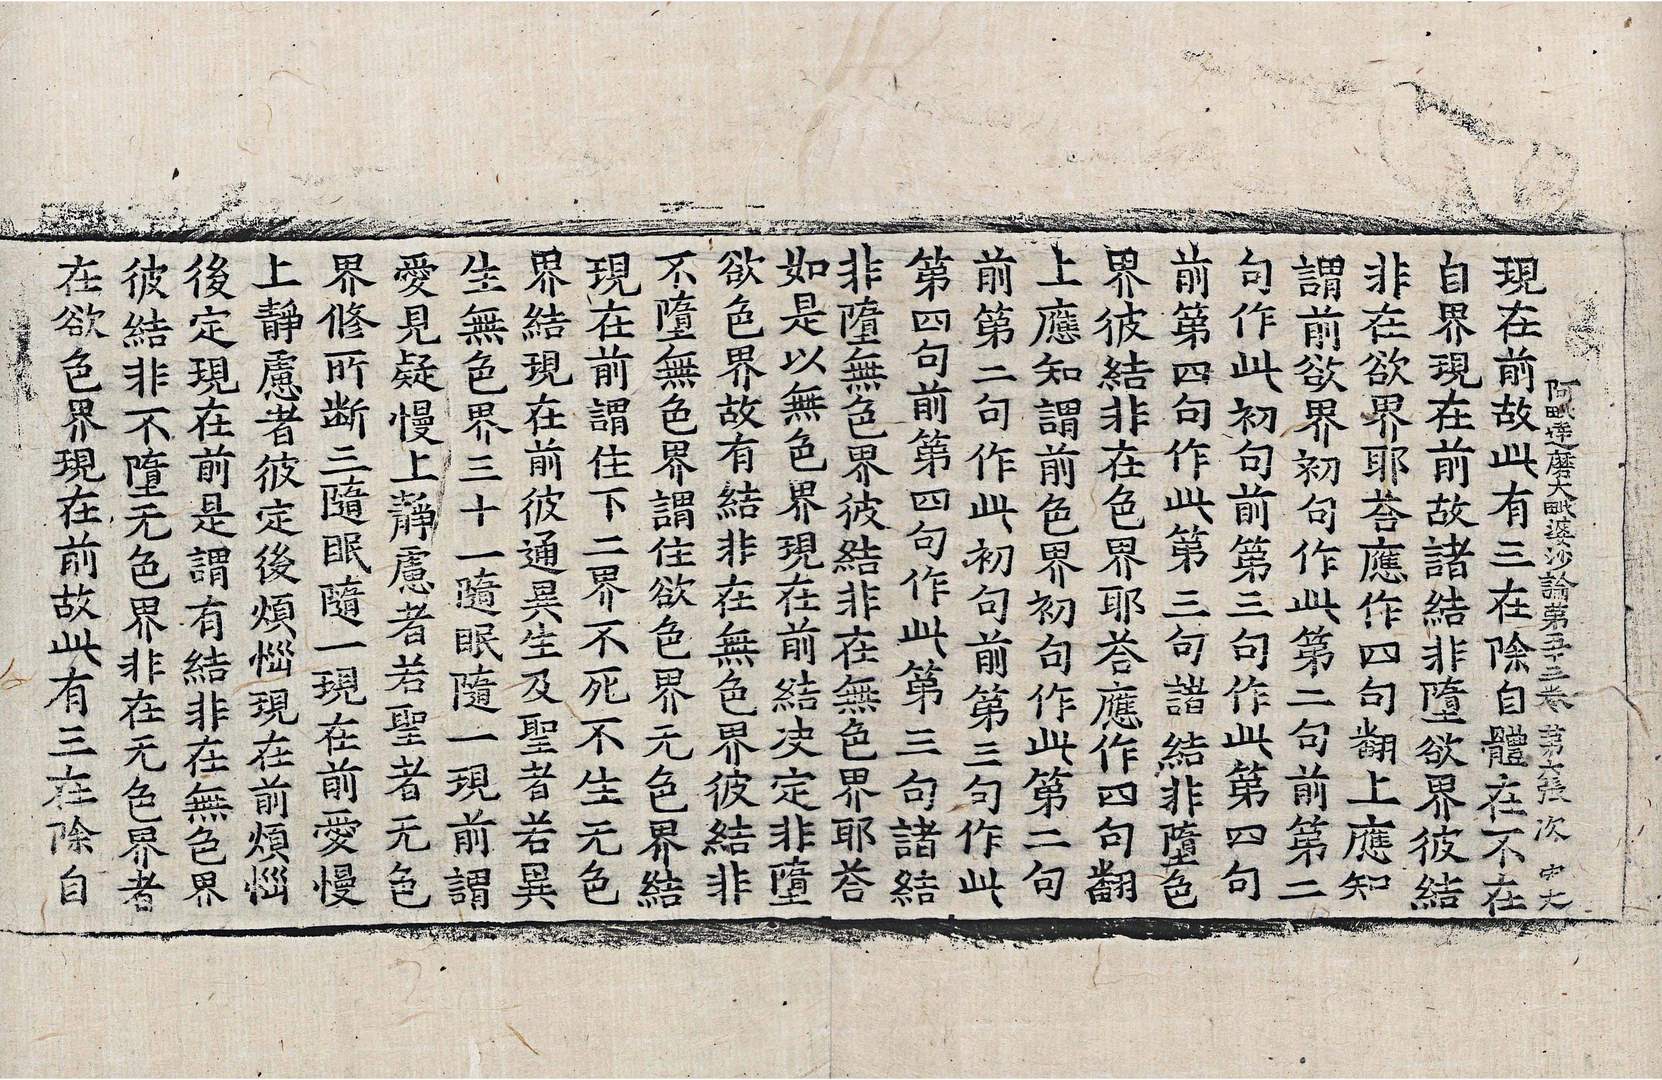 阿毗達磨大毗婆沙論第五十三卷 第七張 次
現在前故此有三在除自體在不在
自界現在前故諸結非墮欲界彼結
非在欲界耶荅應作四句翻上應知
謂前欲界初句作此第二句前第二
句作此初句前第三句作此第四句
前第四句作此第三句諸結非墮色
界彼結非在色界耶荅應作四句翻
上應知謂前色界初句作此第二句
前第二句作此初句前第三句作此
第四句前第四句作此第三句諸結
非墮無色界彼結非在無色界耶荅
如是以無色界現在前結決定非墮
欲色界故有結非在無色界彼結非
不墮無色界謂住欲色界无色界結
現在前謂住下二界不死不生无色
界結現在前彼通異生及聖者若異
生無色界三十一隨眠隨一現前謂
愛見疑慢上靜慮者若聖者无色
界修所断三隨眠隨一現在前愛慢
上靜慮者彼定後煩惱現在前煩惱
後定現在前是謂有結非在無色界
彼結非不墮无色界非在无色界者
在欲色界現在前故此有三在除自